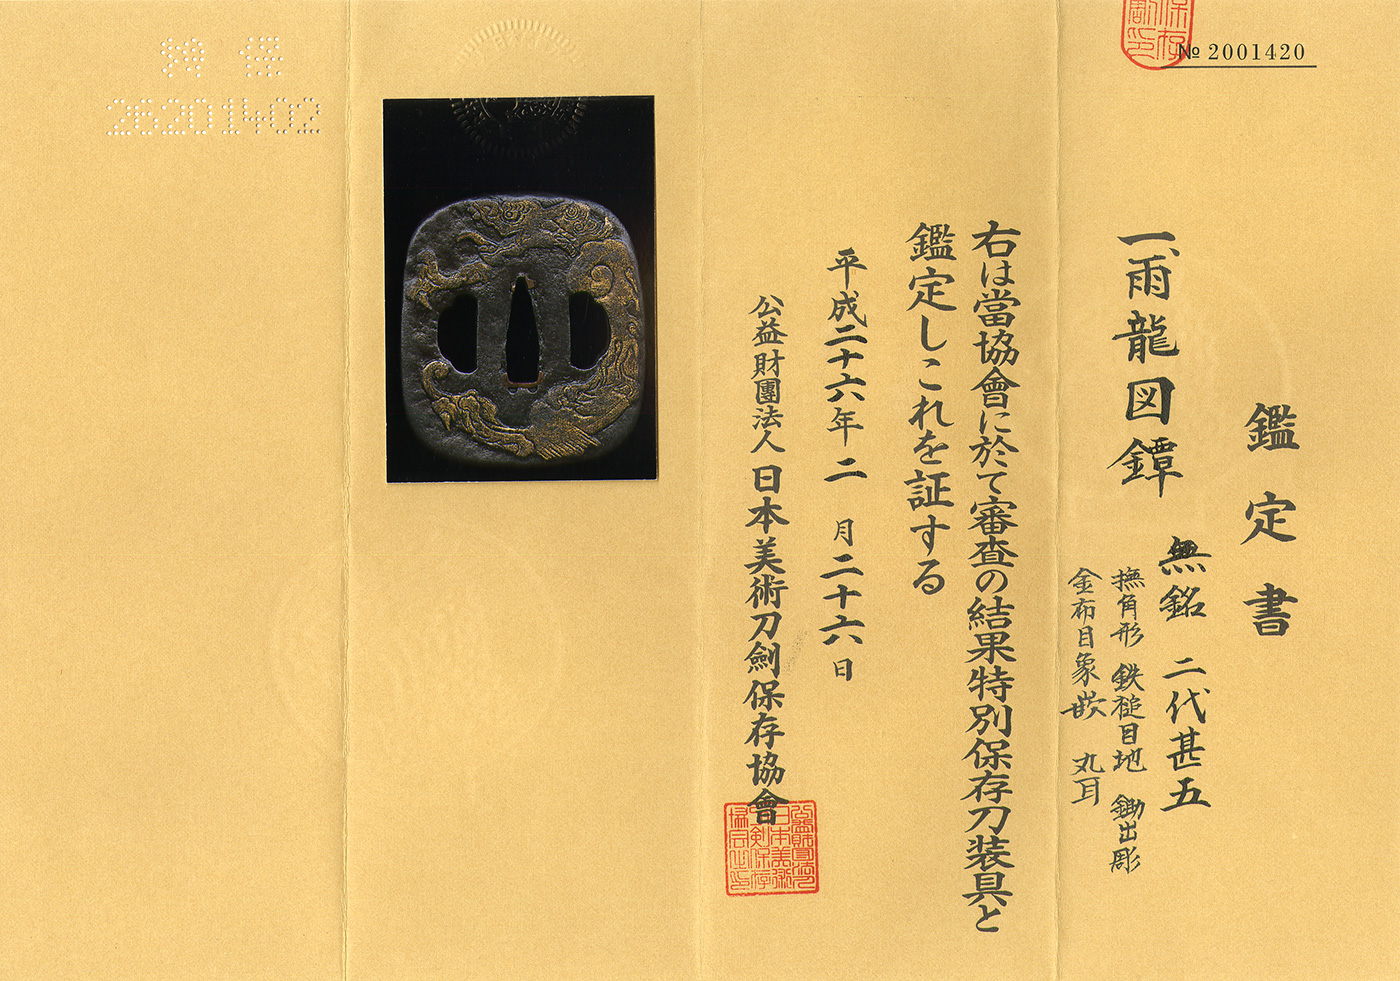 № 2001420
鑑定書
一、雨龍図鐔
無銘 二代甚五
撫角形 鉄槌目地 鋤出彫
金布目象嵌 丸耳
右は當協會に於て審査の結果特別保存刀装具と
鑑定しこれを証する
平成二十六年二月二十六日
公益財團法人 日本美術刀劍保存協會
26201402